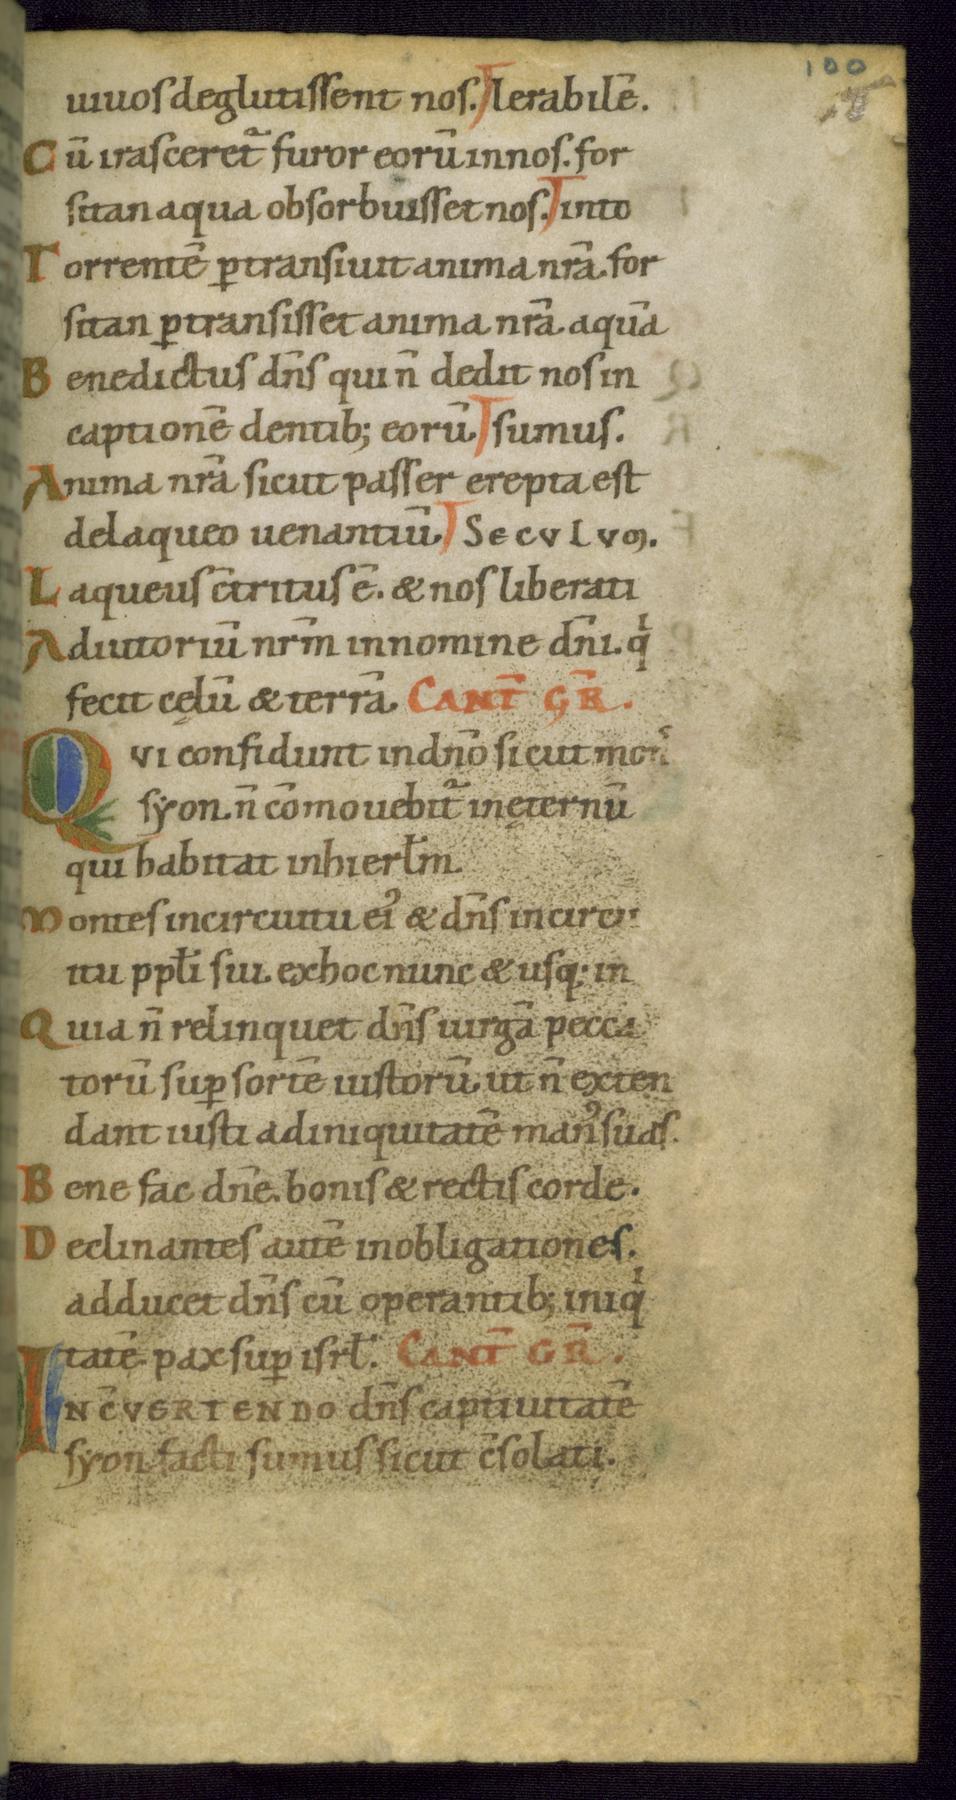 100
uiuos deglutissent nos. lerabilē.
Cū irasceret᷑ furor eorū in nos. for
sitan aqua obsorbuisset nos. into
Torrentē ꝑtransiuit anima nr̄a. for
sitan ꝑtransisset anima nr̄a aquā
Benedictus dn̄s qui n̄ dedit nos in
captionē dentib; eorū. sumus.
Anima nr̄a sicut passer erepta est
de laqueo uenantiū. Seculum.
Laqueus c̄tritus ē. & nos liberati
Adiutoriū nr̄m in nomine dn̄i. qͥ
fecit cęlū & terrā. CANT̄ GR̄.
QVI confidunt in dn̄o sicut mon̄
sẏon. n̄ cōmouebit᷑ in ęternū
qui habitat in hierl̄m.
Montes in circuitu ei᷒ & dn̄s in circu
itu ppl̄i sui. ex hoc nunc & usq; in
Quia n̄ relinquet dn̄s uirgā pecca
torū suꝑ sortē iustorū. ut n̄ exten
dant iusti ad iniquitatē man᷒ suas.
Bene fac dn̄e. bonis & rectis corde.
Declinantes autē in obligationes.
adducet dn̄s cū operantib; iniqͥ
tatē pax suꝑ isrl̄. CANT̄ GR̄.
IN C̄VERTENDO dn̄s captiuitatē
sẏon facti sumus sicut c̄solati.